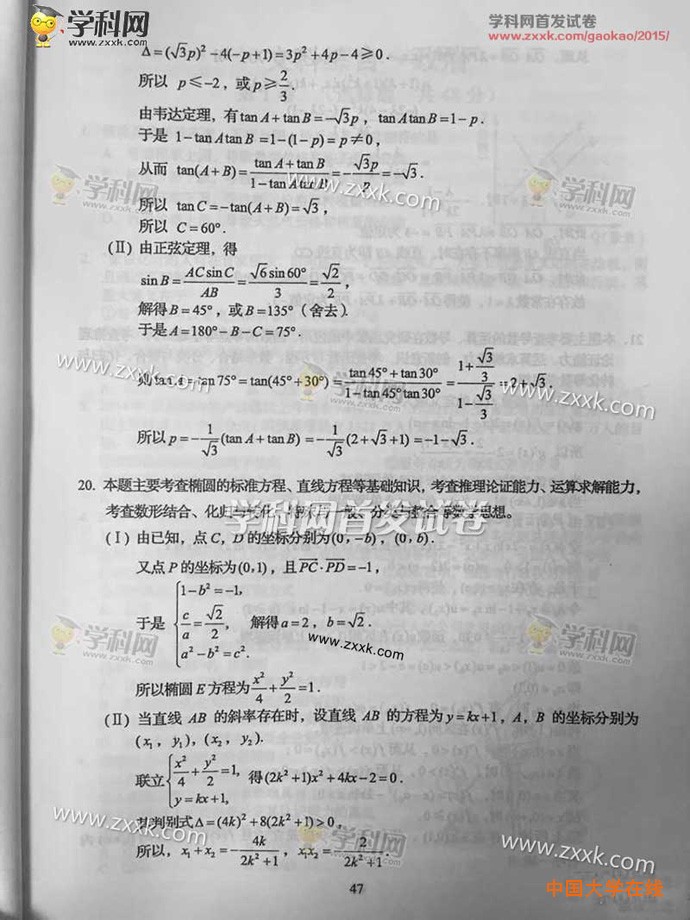 学科网
学科网首发试卷
www.zxxk.com/gaokao/2015/
Δ=(√3p)²-4(-p+1)=3p²+4p-4≥0.
所以 p≤-2，或p≥2/3.
由韦达定理，有tan A+tan B=-√3p，tan Atan B=1-p.
于是 1-tan Atan B=1-(1-p)=p≠0，
从而 tan(A+B)=(tan A+tan B)/(1-tan Atan B)=-√3p/p=-√3.
所以 tan C=-tan(A+B)=√3，
所以 C=60°.
(Ⅱ) 由正弦定理，得
sin B=AC sin C/AB=√6 sin 60°/3=√2/2，
解得B=45°，或B=135°（舍去）.
于是A=180°-B-C=75°.
则tan A=tan 75°=tan(45°+30°)=(tan 45°+tan 30°)/(1-tan 45°tan 30°)=(1+√3/3)/(1-√3/3)=2+√3.
所以p=-1/√3(tan A+tan B)=-1/√3(2+√3+1)=-1-√3.
20. 本题主要考查椭圆的标准方程、直线方程等基础知识，考查推理论证能力、运算求解能力，
考查数形结合、化归与转化、特殊与一般、分类与整合等数学思想。
(Ⅰ) 由已知，点 C，D 的坐标分别为(0,-b)，(0,b).
又点 P 的坐标为(0,1)，且PC·PD=-1，
于是 {1-b²=-1, c/a=√2/2, a²-b²=c². 解得a=2，b=√2.
所以椭圆 E 方程为x²/4+y²/2=1.
(Ⅱ) 当直线 AB 的斜率存在时，设直线 AB 的方程为y=kx+1，A，B 的坐标分别为
(x₁，y₁)，(x₂，y₂).
联立{x²/4+y²/2=1, y=kx+1, 得(2k²+1)x²+4kx-2=0.
其判别式Δ=(4k)²+8(2k²+1)>0，
所以，x₁+x₂=-4k/(2k²+1)，x₁x₂=-2/(2k²+1).
47
中国大学在线
学科网
www.zxxk.com
学科网
www.zxxk.com
www.zxxk.com
学科网首发试卷
学科网
www.zxxk.com
学科网
www.zxxk.com
学科网
www.zxxk.com